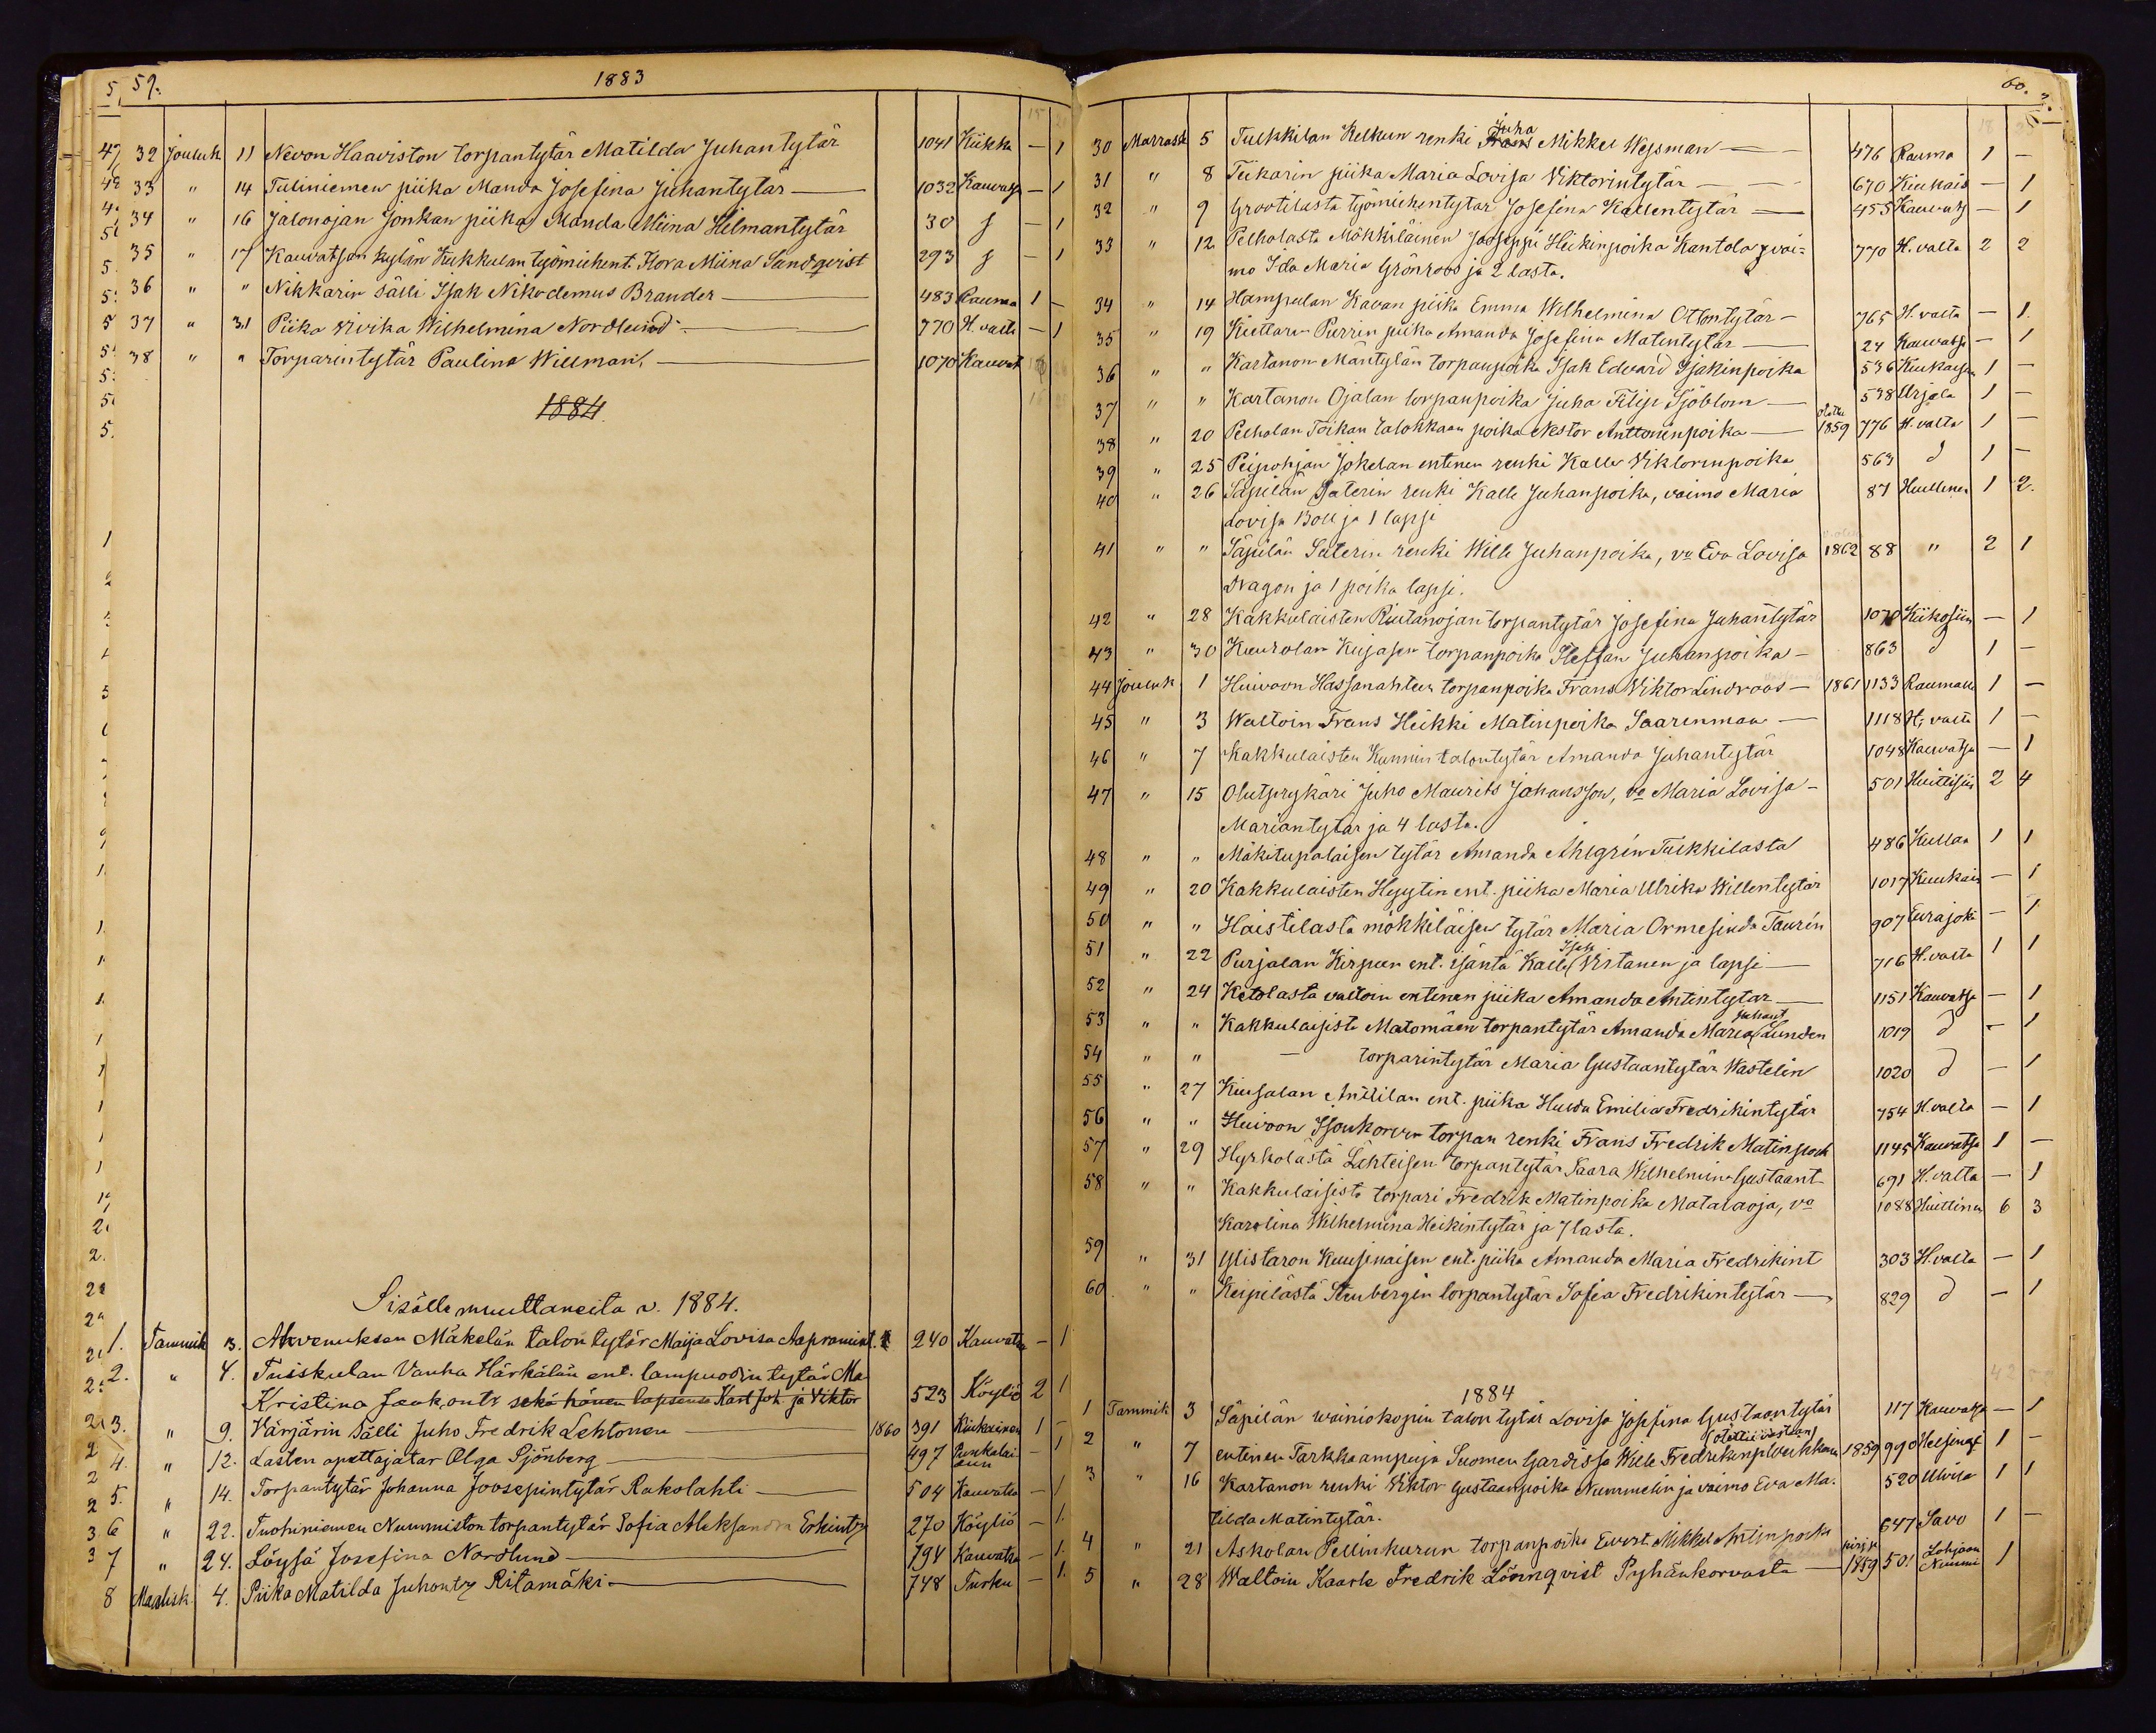 59.
1883
32 Jouluk 11 Nevon Haaviston torpantytär Matilda Juhantytär 1041 Kiikka — 1
33 " 14 Tuliniemen piika Manda Josefina Juhantytär — 1032 Kauvatsa — 1
34 " 16 Jalonojan Jonkan piika Manda Miina Helmantytär 30 — 1
35 " 17 Kauvatsan kylän Kukkulan työmiehent. Flora Miina Sandqvist 293 — 1
36 " " Nikkarin sälli Isak Nikodemus Brander — 483 Rauma 1 —
37 " 31 Piika Vivika Wilhelmina Nordlund — 770 H. valta — 1
38 " " Torparintytär Paulina Willman. — 1070 Kauvat
1884.
Sisälle muuttaneita v. 1884.
1. Tammik 3. Ahvenuksen Mäkelän talon tytär Maija Lovisa Aapramint. 240 Kauvatsa — 1
2. " 4. Tuiskulan Vanha Härkälän ent. lampuodin tytär Ma
Kristina Jaak.ontr sekä hänen lapsensa Karl Joh. ja Viktor 523 Köyliö 2 1
3. " 9. Värjärin Sälli Juho Fredrik Lehtonen — 1860 391 Kiukainen 1 —
4. " 12. Lasten opettajatar Olga Sjönberg — 497 Punkalai
dun — 1
5. " 14. Torpantytär Johanna Joosepintytär Rakolahti — 504 Kauvatsa — 1
6 " 22. Tuohiniemen Nummiston torpantytär Sofia Aleksandra Erkinty 270 Köyliö — 1.
7 " 24. Löysä Josefina Nordlund — 794 Kauvatsa — 1.
8 Maalisk. 4. Piika Matilda Juhonty Ritamäki — 748 Turku — 1.
60.
30 Marrask 5 Tulkkilan Kelkun renki Juha Frans Mikkel Weysman — 476 Rauma 1 —
31 " 8 Tiikarin piika Maria Lovisa Viktorintytär — 670 Kiukais — 1
32 " 9 Grootilasta työmiehentytär Josefina Kallentytär — 455 Kauvats — 1
33 " 12 Pelholasta Mökkiläinen Jooseppi Heikinpoika Kantola, vai- 770 H. valta 2 2
mo Ida Maria Grönroos ja 2 lasta.
34 " 14 Hampulan Kavan piika Emma Wilhelmina Ottontytär — 765 H. valta — 1.
35 " 19 Kiettaren Purrin piika Amanda Josefina Matintytär — 24 Kauvatsa — 1
36 " " Kartanon Mäntylän torpanpoika Isak Edvard Isakinpoika 536 Kiukaisen 1 —
37 " " Kartanon Ojalan torpanpoika Juha Filip Sjöblom — 538 Urjala 1 —
38 " 20 Pelholan Toikan talokkaan poika Nestor Anttoninpoika — 1859 776 H. valta 1 —
39 " 25 Peipohjan Jokelan entinen renki Kalle Viktorinpoika 563 d 1 —
40 " 26 Säpilän Saterin renki Kalle Juhanpoika, vaimo Maria 87 Huittinen 1 2.
Lovisa Boll ja 1 lapsi
41 " " Säpilän Saterin renki Wille Juhanpoika, vo Eva Lovisa 1862 88 " 2 1
Dragon ja 1 poika lapsi.
42 " 28 Kakkulaisten Riutanojan torpantytär Josefina Juhantytär 1070 Kiikoisiin — 1
43 " 30 Kuurolan Kujasen torpanpoika Steffan Juhanpoika — 863 d 1 —
44 Jouluk 1 Huivoon Hassanahteen torpanpoika Frans Viktor Lindroos — 1861 1133 Raumalle 1 —
45 " 3 Waltoin Frans Heikki Matinpoika Saarenmaa — 1118 H. valta 1 —
46 " 7 Kakkulaisten Kunnin talontytär Amanda Juhantytär 1048 Kauvatsa — 1
47 " 15 Olutprykäri Juho Maurits Johansson, vo Maria Lovisa — 501 Huittisiin 2 4
Mariantytär ja 4 lasta.
48 " " Mäkitupalaisen tytär Amanda Ahlgrén Tulkkilasta 486 Kullaa 1 1
49 " 20 Kakkulaisten Hyytin ent. piika Maria Ulrika Willentytär 1017 Kiukais — 1
50 " " Haistilasta mökkiläisen tytär Maria Ormesinda Taurén 907 Eurajoki — 1
51 " 22 Purjalan Kirpun ent. isäntä Kalle Isak Virtanen ja lapsi — 716 H. valta 1 1
52 " 24 Ketolasta valtoin entinen piika Amanda Antintytar — 1151 Kauvatsa — 1
53 " " Kakkulaisista Matomäen torpantytär Amanda Maria Juhant Lunden 1019 d — 1
54 " " — torparintytär Maria Gustaantytär Wastelin 1020 d — 1
55 " 27 Kiusalan Anttilan ent. piika Hulda Emilia Fredrikintytär 754 H. valta — 1
56 " " Huivoon Isonkorven torpan renki Frans Fredrik Matinpoik 1145 Kauvatsa 1 —
57 " 29 Hyrkolästä Lähteisen torpantytär Saara Wilhelmina Gustaant 691 H. valta — 1
58 " " Kakkulaisista torpari Fredrik Matinpoika Matalaoja, vo 1088 Huittinen 6 3
Karolina Wilhelmina Heikintytär ja 7 lasta.
59 " 31 Ylistaron Kuusinaisen ent. piika Amanda Maria Fredrikint 303 H. valta — 1
60 " " Keipilästä Stenbergin torpantytär Sofia Fredrikintytär — 829 d — 1
1884
1 Tammik 3 Säpilän Wainiokopin talon tytär Lovisa Josefina Gustaantytär 117 Kauvatsa — 1
2 " 7 entinen Tarkkaampuja Suomen Gardissa Wille Fredrikinp 1859 990 Helsingf 1 —
3 " 16 Kartanon renki Viktor Gustaanpoika Nummelin ja vaimo Eva Ma- 520 Ulvila 1 1
tilda Matintytär.
4 " 21 Askolan Pellinkurun torpanpoika Evert Mikkel Antinpoika 647 Savo 1 —
5 " 28 Waltoin Kaarle Fredrik Lönnqvist Pyhänkorvasta — 1859 501 Lohjaan
Nummi 1